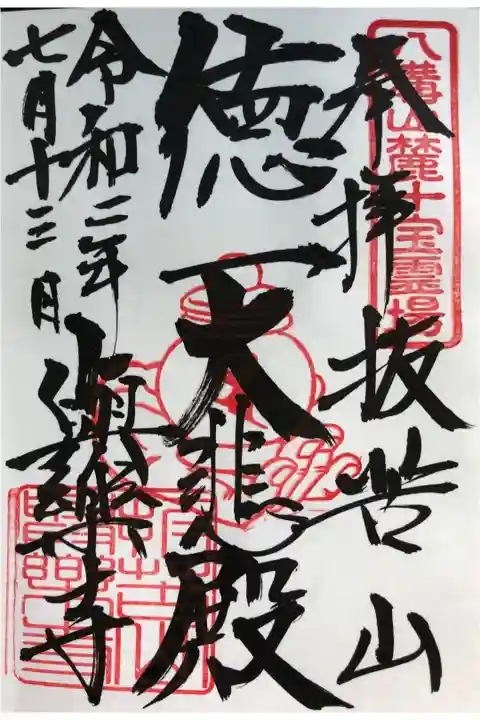 八溝山麓十宝霊場
奉拝
抜苦山
徳一大悲殿
令和二年
七月十三日
與樂寺